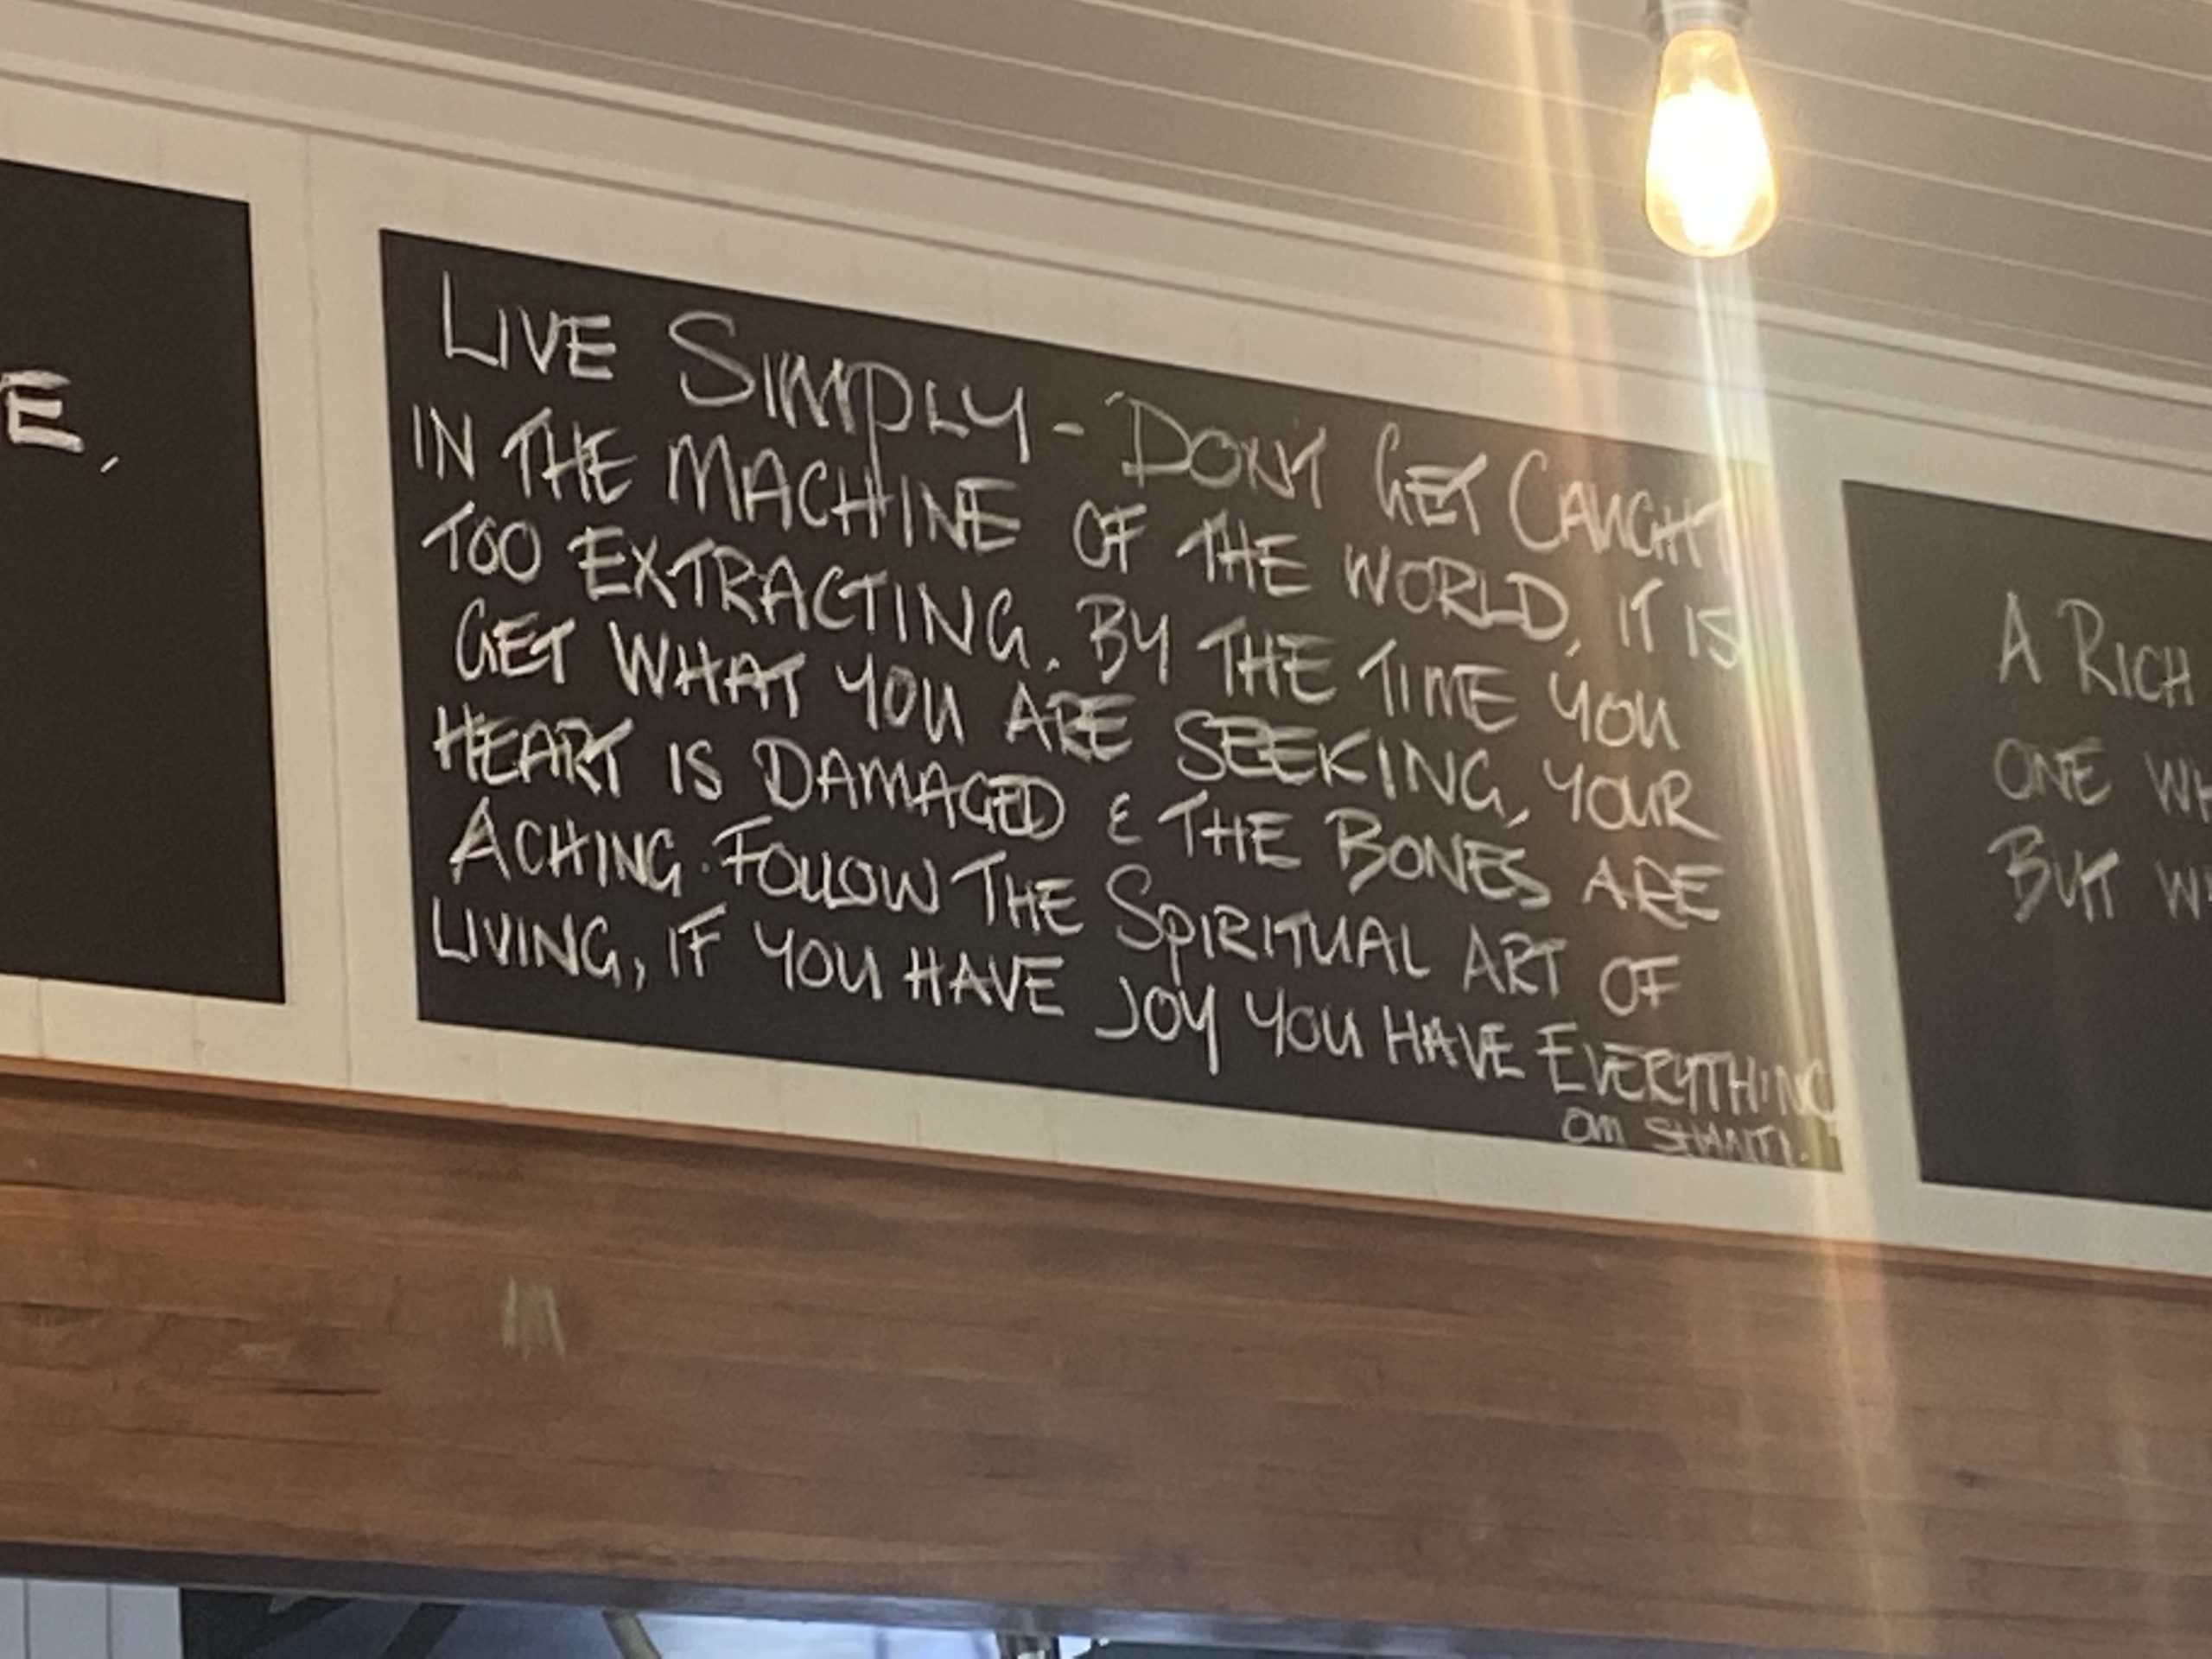 E.
LIVE SIMPLY - DON'T GET CAUGHT
IN THE MACHINE OF THE WORLD, IT IS
TOO EXTRACTING. BY THE TIME YOU
GET WHAT YOU ARE SEEKING, YOUR
HEART IS DAMAGED & THE BONES ARE
ACHING. FOLLOW THE SPIRITUAL ART OF
LIVING, IF YOU HAVE JOY YOU HAVE EVERYTHING
OM SHANTI.
A RICH
ONE WH
BUT W